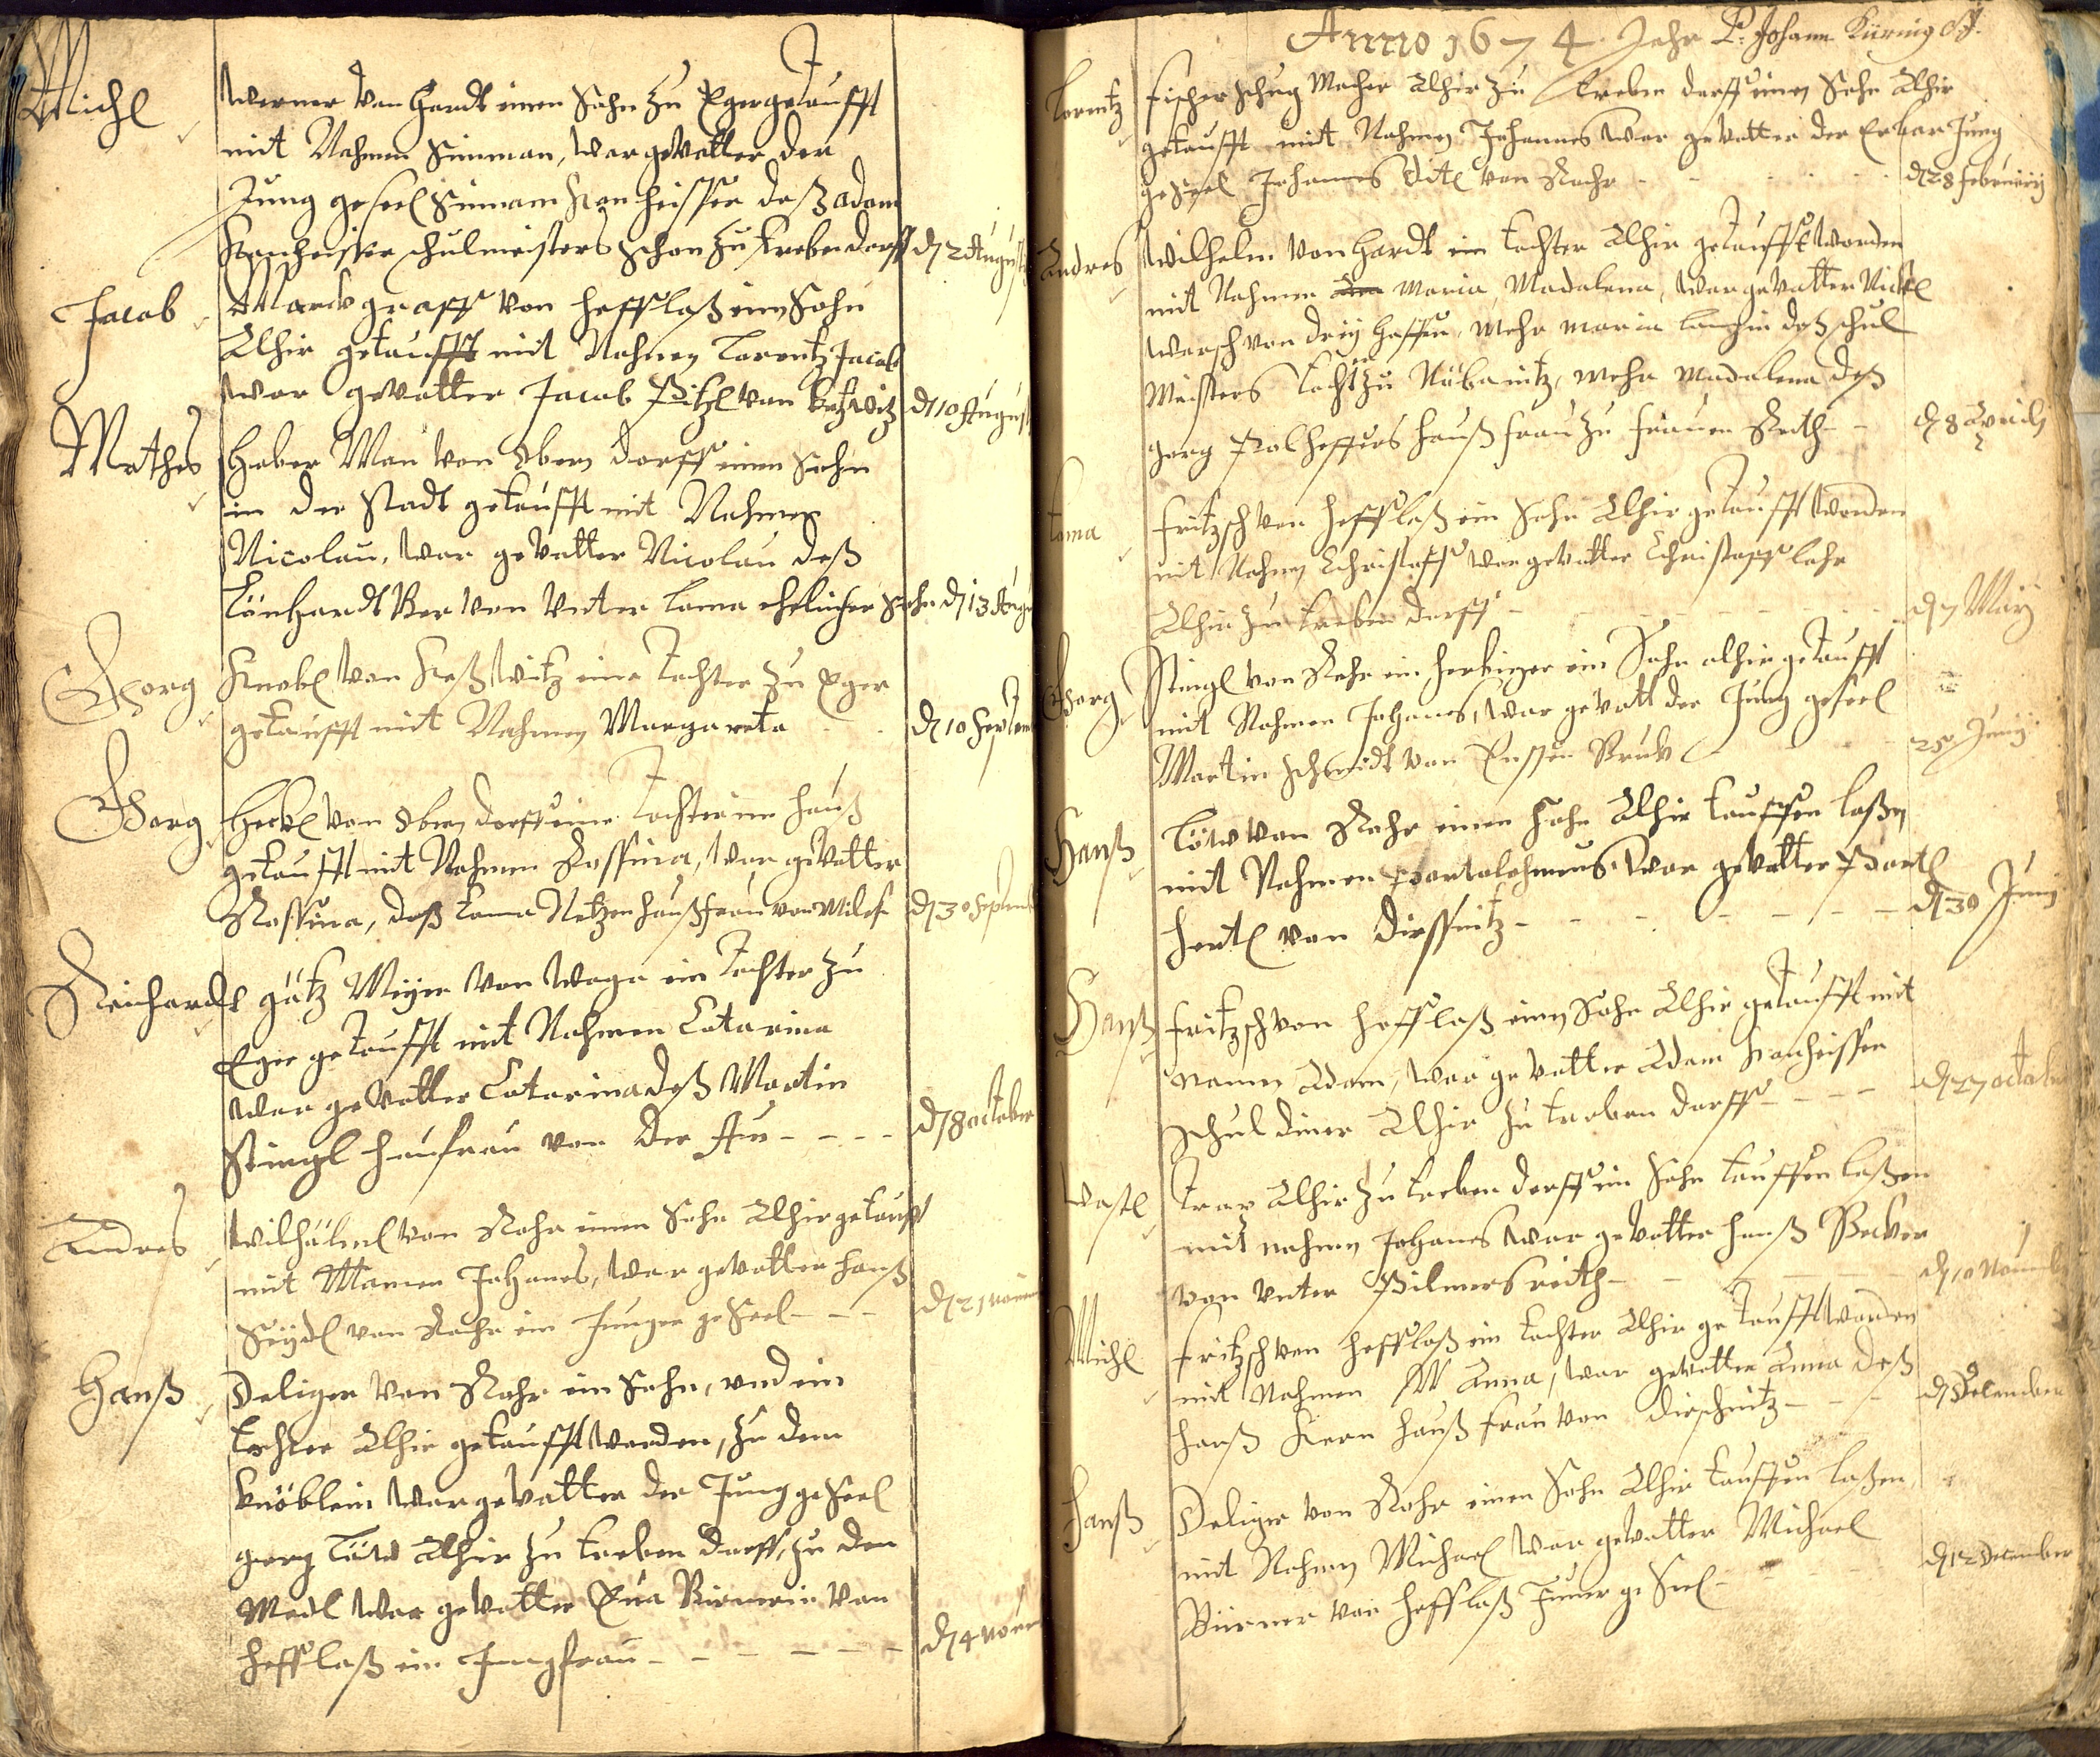 Michl Werner von Hardt einen Sohn zu Eger getaufft
mit Nahmen Simman, war gevatter der
Jung geseel Simmam deß adam
schulmeisters Sohn zu Krebendorff d 2 Augusti
Jacob Marck graff von Heffflaß einen Sohn
Alhir getaufft mit Nahmen Lorentz Jacob
war gevatter Jacob von d 10 August
Mathes Haber Man von Obern dorff einen Sohn
in der Stadt getaufft mit Nahmen
Nicolau, war gevatter Nicolau deß
Lönhardt Ber von Unter Loma ehelicher Sohn d 13 Augu
Georg Knobl von eine Tochter zu Eger
getaufft mit Nahmen Margareta d 10 Septem
Georg Heckl von Obern dorff eine Tochter im Hauß
getaufft mit Nahmen Rossina, war gevatter
Rossina, deß Toma Netzen haußfrau von d 30 Septemb
Reichardt götz Meÿer von Woga ein Tochter zu
Eger getaufft mit Nahmen Catarina
war gevatter Catarina deß Martin
Stingl haußfrau von der Au d 8 october
Andres Wilhälml von Rohr einen Sohn Alhir getaufft
mit Namen Johanes, war gevatter Hanß
Seÿdl von Rohr ein Junger geseel d 21 novem
Hanß Deliger von Rohr ein Sohn, und ein
Tochter Alhir getaufft worden, zu dem
knöblein war gevatter der Jung geseel
georg Löw Alhir zu Treben dorff, zu den
Medl war gevatter Eva von
Heffflaß ein Jungfrau d 4 novem
Anno 1674 Jahr P. Johann
Lorentz fischer schug Macher Alhir zu Treben dorff einen Sohn Alhir
getaufft mit Nahmen Johannes war gevatter der Erbar Jung
geseel Johannes von Rohr d 28 februarij
Andres Wilhelm von Hardt ein tochter Alhir getaufft worden
mit Nahmen Maria, Madalena, war gevatter Nickel
von dreÿ Haffen, mehr maria deß schul
Meisters Tochter zu Nöbanitz, mehr Madalena deß
georg hauß frau zu frauen Reith d 8 Aprily
toma fritzsch von Heffflaß ein Sohn Alhir getaufft worden
mit Nahmen Christoff war gevatter Christoff Lohr
Alhir zu Treben dorff d 7 Maÿ
Georg Stingl von Rohr ein herbirger ein Sohn alhir getaufft
mit Nahmen Johanes, war gevatt der Jung geseel
Martin Schmidt von 25 Junÿ
Hanß Löw von Rohr einen Sohn Alhir tauffen laßen
mit Nahmen Bartolohmeus war gevatter Bartl
Hertl von Dirsnitz d 30 Junÿ
Hanß fritzsch von Heffflaß einen Sohn Alhir getaufft mit
namen Adam, war gevatter Adam
Schul diner Alhir zu Treben dorff d 27 octob
Wastl Alhir zu Treben dorff ein Sohn tauffen laßen
mit nahmen Johanes war gevatter Hanß Becker
von Unter Pilmersreith d 10 Novemb
Michl fritzsch von Heffflaß ein tochter Alhir getaufft worden
mit Nahmen M Anna, war gevatter Anna deß
Hanß Kern hauß frau von Dirschnitz d December
Hanß Deliger von Rohr einen Sohn Alhir tauffen laßen
mit Nahmen Michael war gevatter Michael
von Heffflaß Junger geseel d 12 december